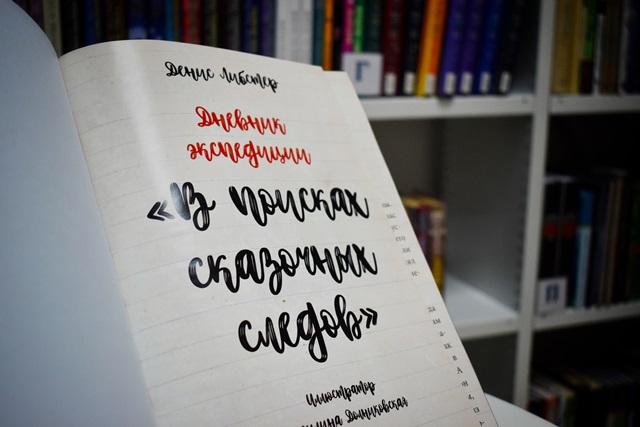 Денис Либстер
Дневник
экспедиции
«В поисках
сказочных
следов»
Иллюстратор
Долниковская
Г